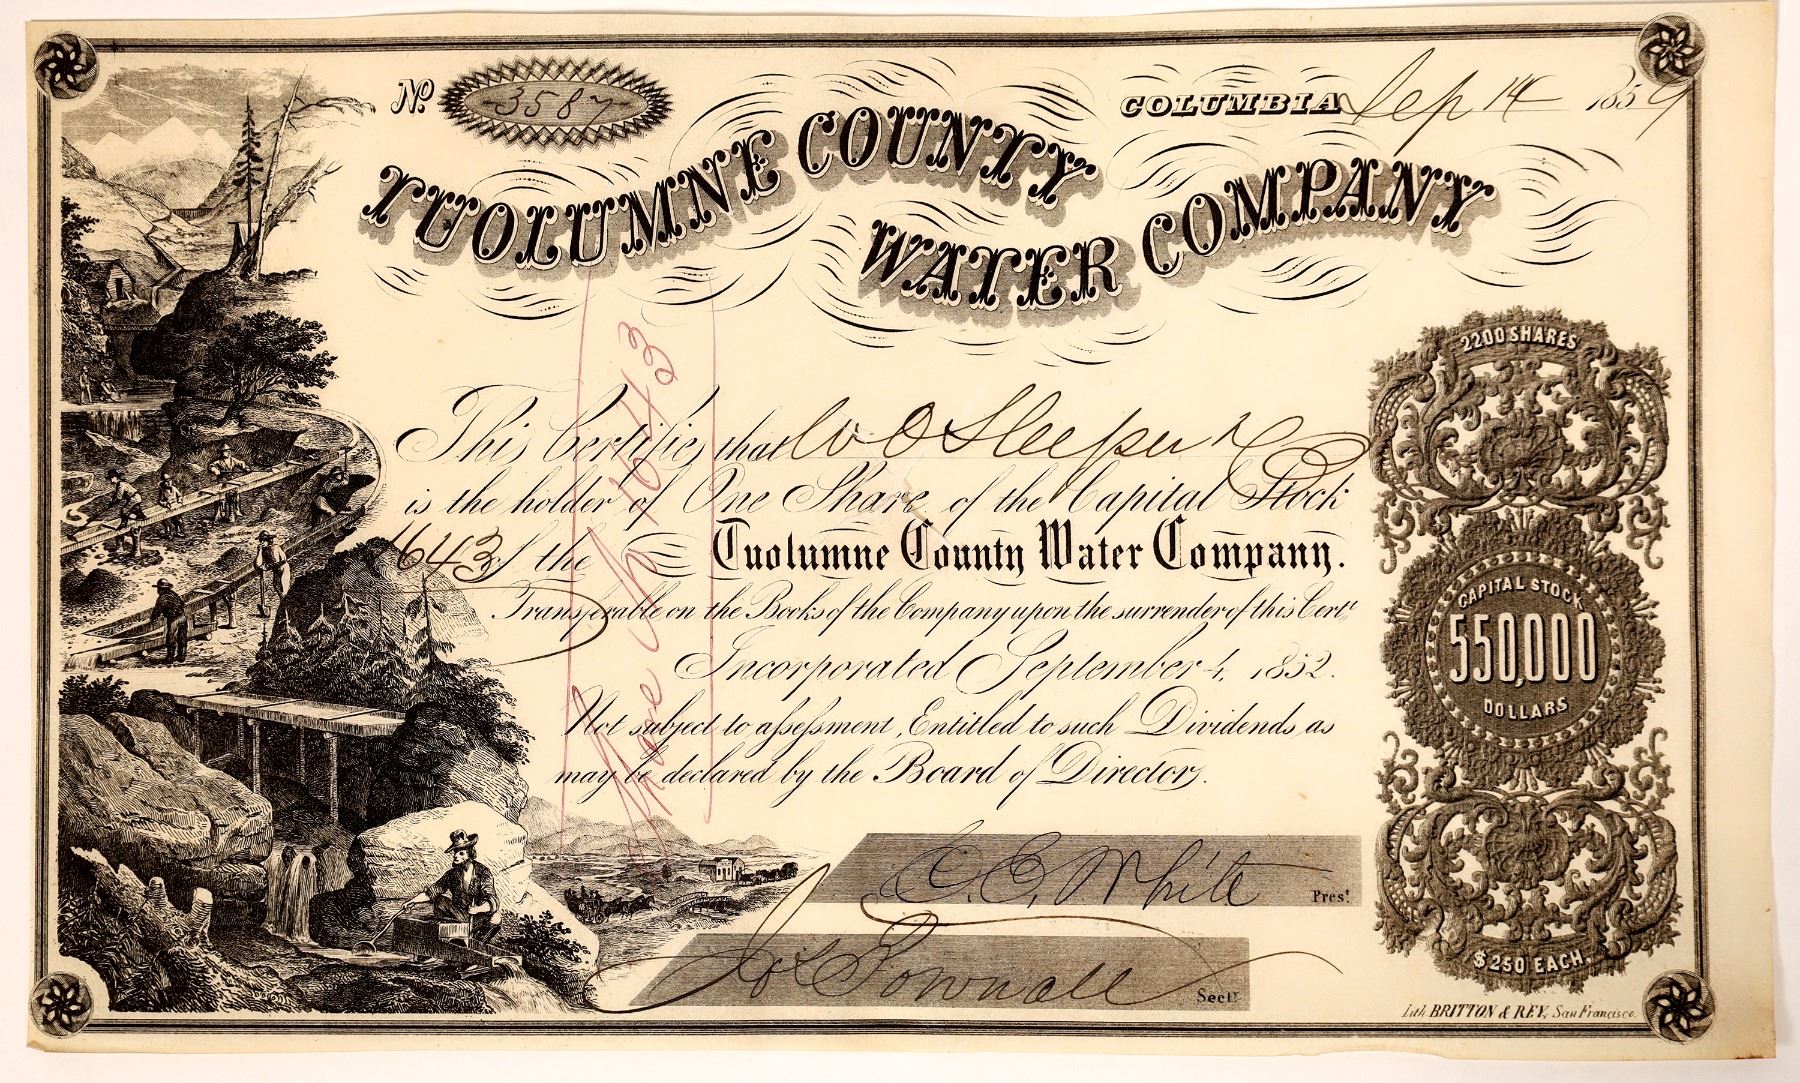 No 3587
COLUMBIA Sep 14 1859
TUOLUMNE COUNTY
WATER COMPANY
2200 SHARES
This Certifies that W O Sleeper
is the holder of One Share of the Capital Stock
1643 of the Tuolumne County Water Company.
Transferable on the Books of the Company upon the surrender of this Certt
Incorporated September 4, 1852.
Not subject to assessment, Entitled to such Dividends as
may be declared by the Board of Directors.
CAPITAL STOCK
550,000
DOLLARS
$250 EACH.
Share No 1643
C. E. White Prest
Jos Pownall Secty
Lith. BRITTON & REY, San Francisco.